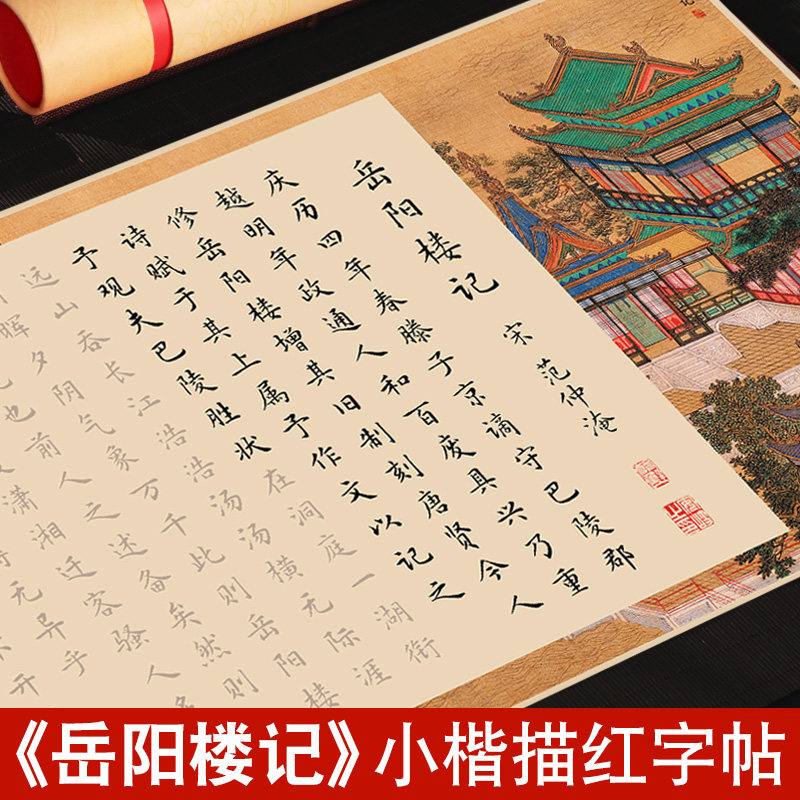 岳阳楼记
宋 范仲淹
庆历四年春滕子京谪守巴陵郡
越明年政通人和百废具兴乃重
修岳阳楼增其旧制刻唐贤今人
诗赋于其上属予作文以记之
予观夫巴陵胜状在洞庭一湖衔
远山吞长江浩浩汤汤横无际涯
晖夕阴气象万千此则岳阳楼
也前人之述备矣然则
潇湘迁客骚人
无异乎
开
《岳阳楼记》小楷描红字帖